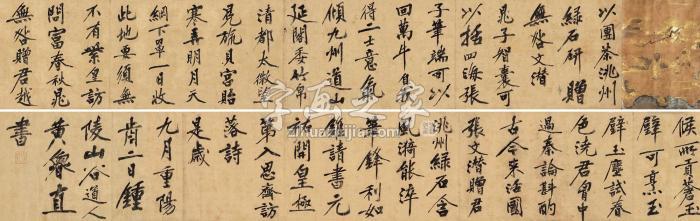 以團茶洮州
綠石研贈
無咎文潛
晁子智囊可
以括四海張
子筆端可以
回萬牛自我
得二士意氣
傾九州道山
延閣委竹帛
清都太微望
冕旒貝宮胎
寒弄明月天
網下罩一日收
此地要須無
不有紫皇訪
問富春秋晁
無咎贈君越
侯所貢蒼玉
璧可烹玉
璧玉塵試春
色洗君胸中
過秦論斟酌
古今來活國
張文潛贈君
洮州綠石含
風漪能淬
筆鋒利如
錐請書元
祐開皇極
第入思齊訪
落詩
是歲
九月重陽
前二日鍾
陵山谷道人
黃魯直
書
字画之家